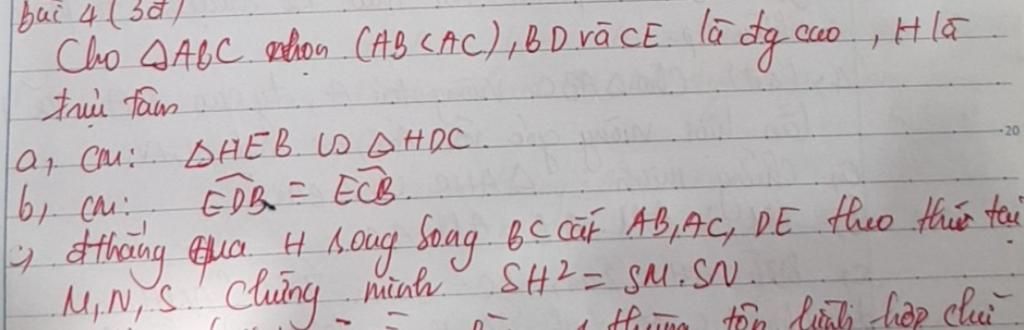 bài 4 (3đ)
Cho ΔABC nhọn (AB<AC), BD và CE là đg cao, H là
trực tâm
a, cm: ΔHEB ∽ ΔHDC.
b, cm: \widehat{EDB} = \widehat{ECB}.
c, đthẳng qua H song song BC cắt AB, AC, DE theo thứ tại
M, N, S. Chứng minh SH² = SM.SN
tồn hình hộp chữ